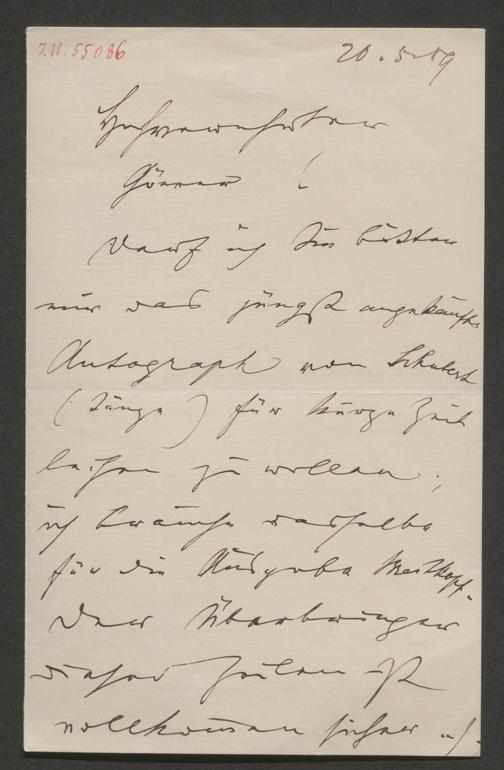 I.N. 55086
20.5.89
Hochverehrter
Gönner!
Darf ich Sie bitten
mir das jüngst angekaufte
Autograph von Schubert
(Tänze) für kurze Zeit
leihen zu wollen;
ich brauche dasselbe
für die Ausgabe Breitkopf.
Der Überbringer
dieser Zeilen ist
vollkommen sicher